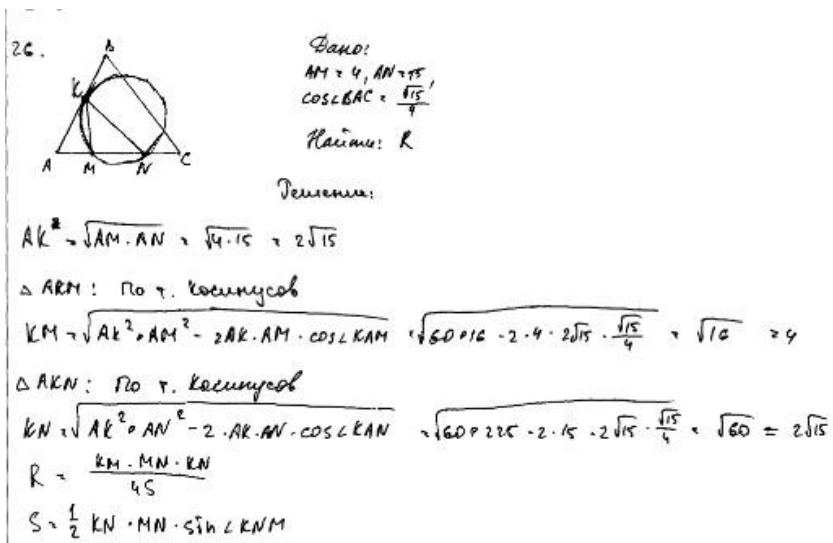 26.
B
K
A M N C
Дано:
AM = 4, AN = 15,
cos∠BAC = √15/4
Найти: R
Решение:
AK = √(AM · AN) = √(4 · 15) = 2√15
△ AKM: По т. косинусов
KM = √(AK² + AM² - 2AK · AM · cos∠KAM) = √(60 + 16 - 2 · 4 · 2√15 · √15/4) = √16 = 4
△ AKN: По т. косинусов
KN = √(AK² + AN² - 2 · AK · AN · cos∠KAN) = √(60 + 225 - 2 · 15 · 2√15 · √15/4) = √60 = 2√15
R = (KM · MN · KN)/4S
S = 1/2 KN · MN · sin∠KNM